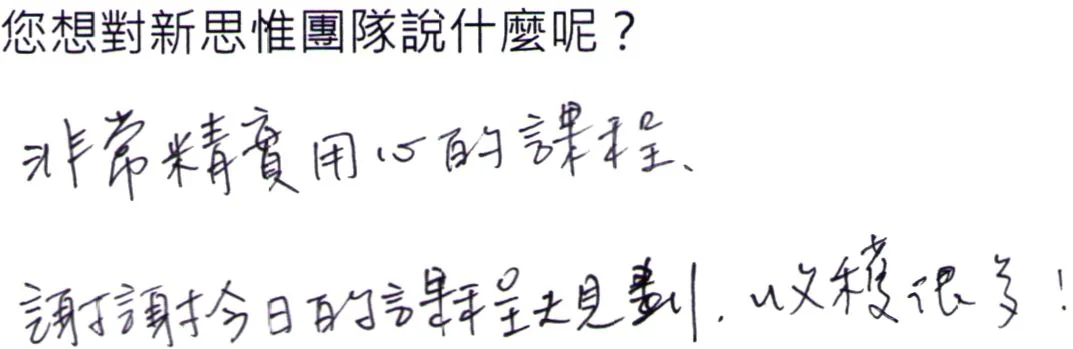 您想對新思惟團隊說什麼呢？
非常精實用心的課程、
謝謝今日的課程規劃，收穫很多！